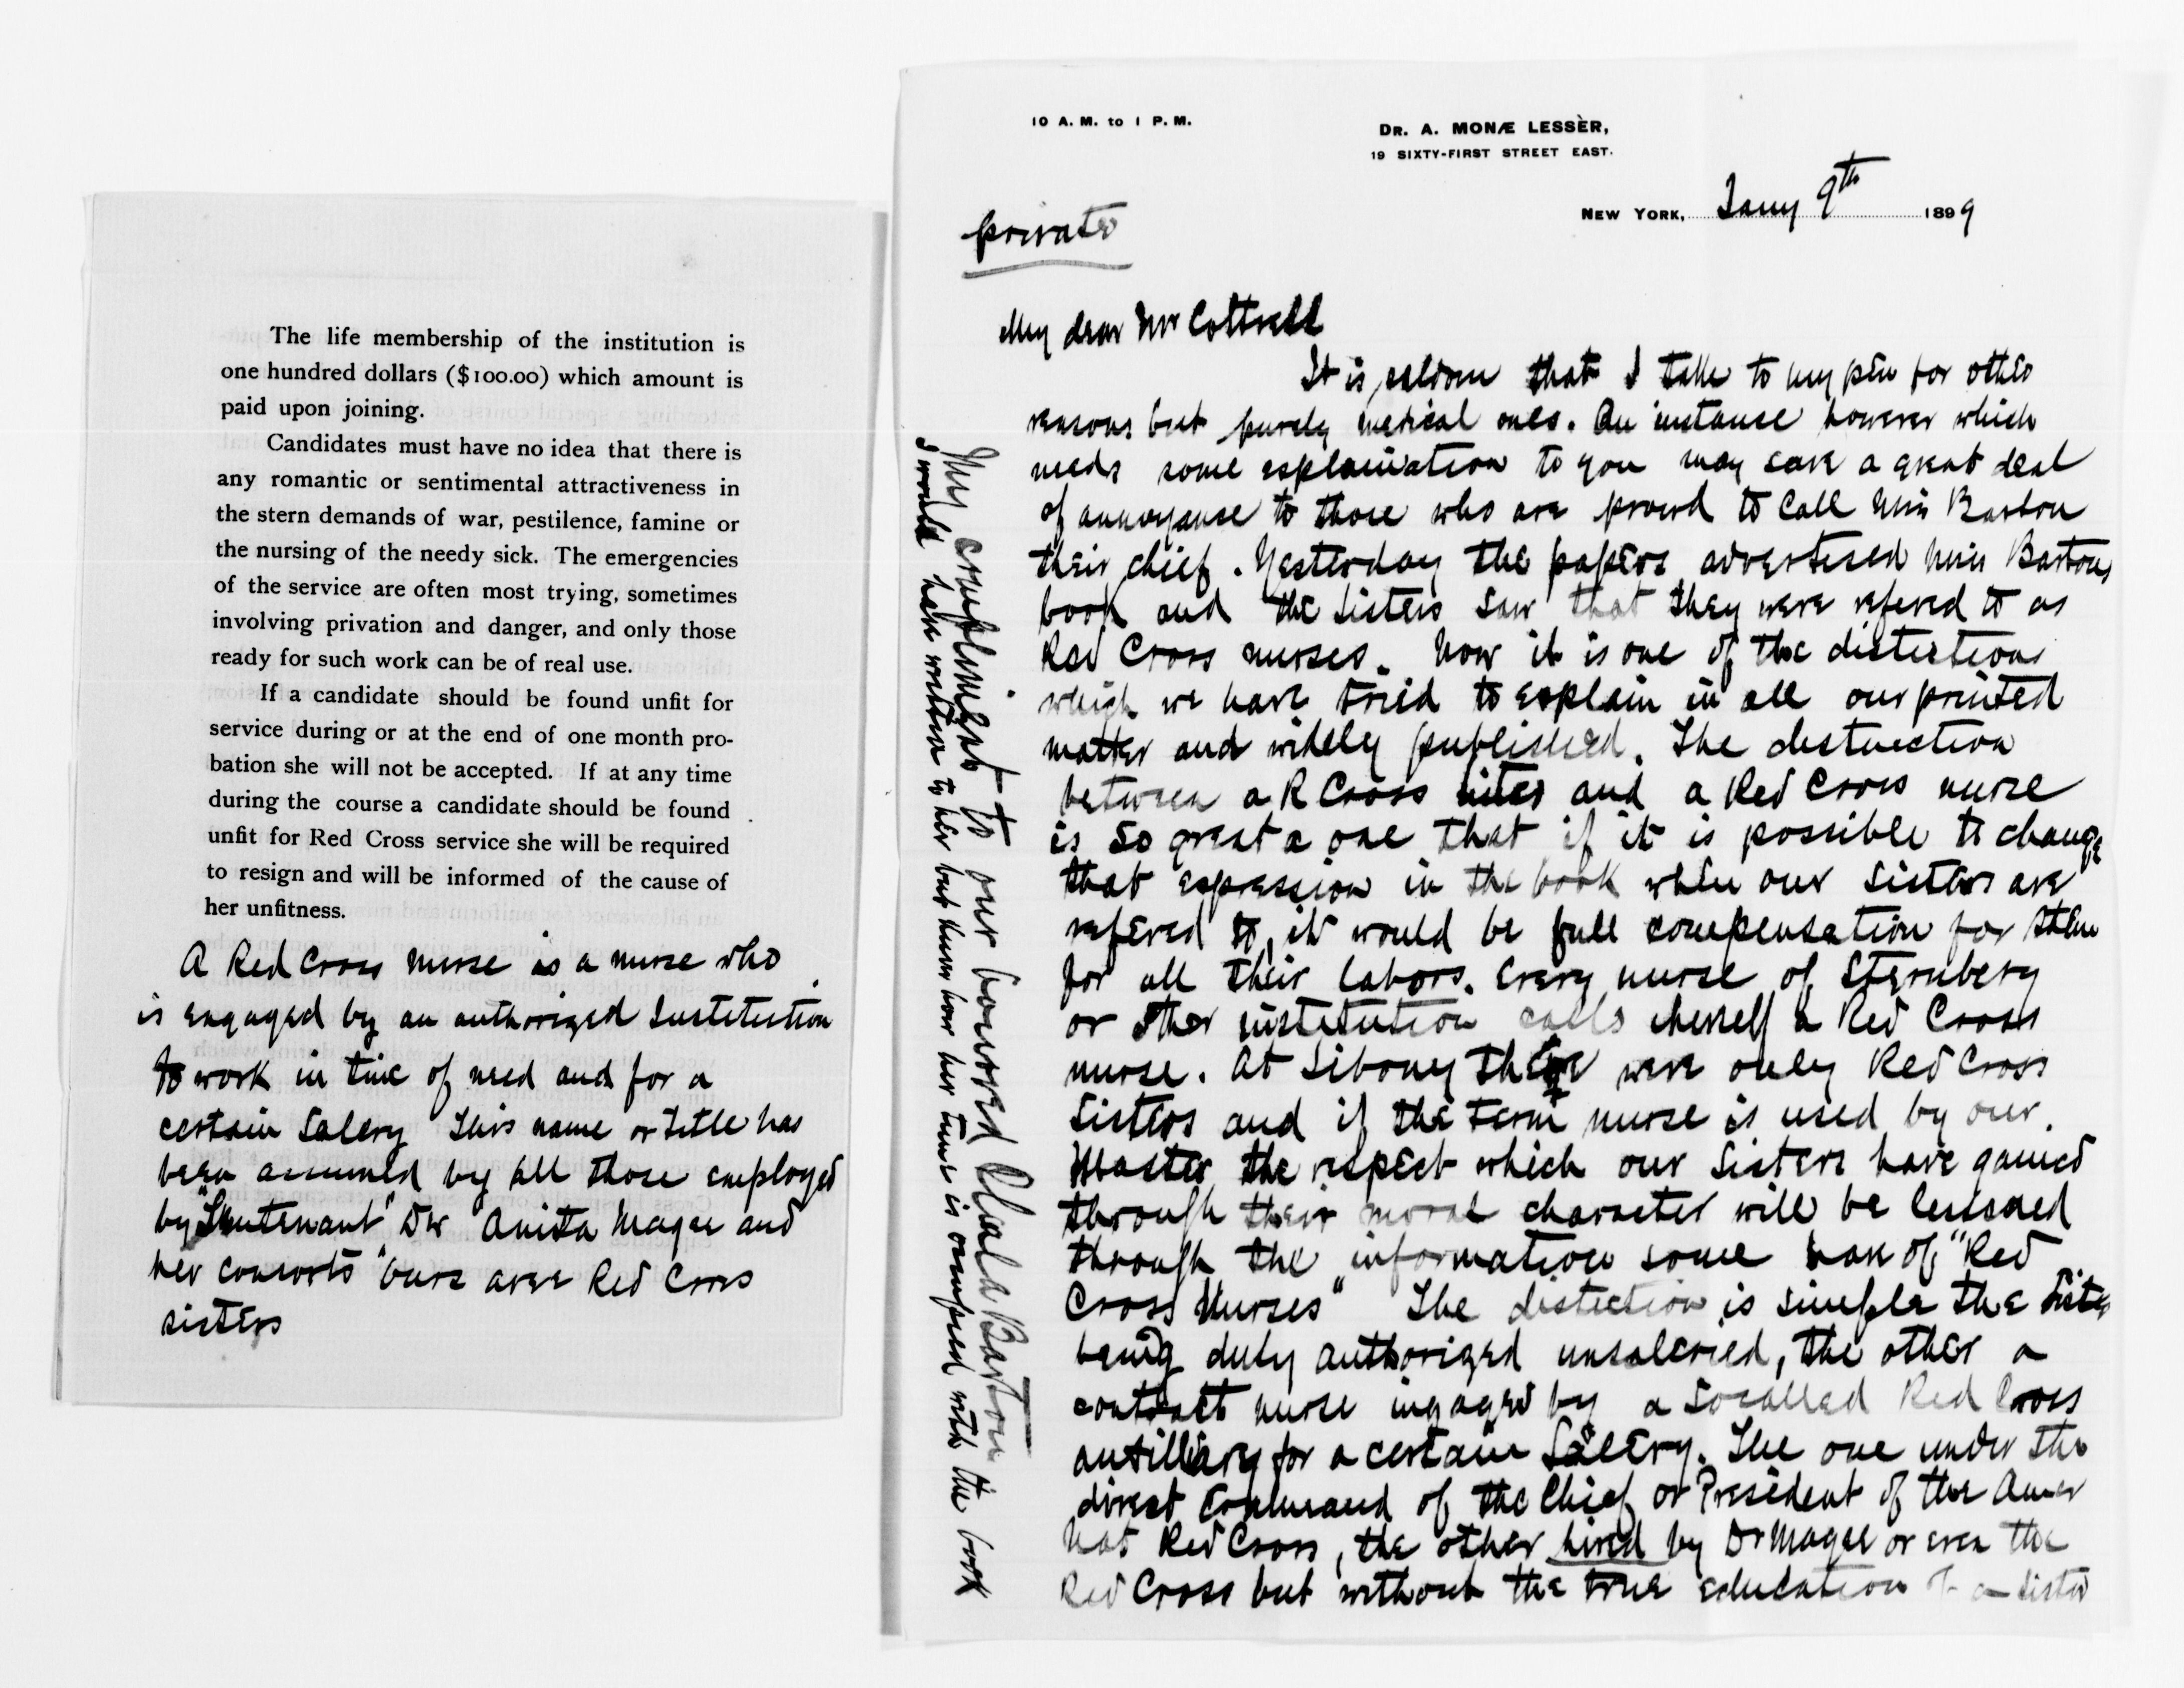 The life membership of the institution is
one hundred dollars ($100.00) which amount is
paid upon joining.
Candidates must have no idea that there is
any romantic or sentimental attractiveness in
the stern demands of war, pestilence, famine or
the nursing of the needy sick. The emergencies
of the service are often most trying, sometimes
involving privation and danger, and only those
ready for such work can be of real use.
If a candidate should be found unfit for
service during or at the end of one month pro-
bation she will not be accepted. If at any time
during the course a candidate should be found
unfit for Red Cross service she will be required
to resign and will be informed of the cause of
her unfitness.
A Red Cross nurse is a nurse who
is engaged by an authorized Institution
to work in time of need and for a
certain Salery This name or title has
been assumed by all those employed
by "Lieutenant" Dr Anita Magee and
her consorts" Ours are Red Cross
sisters
10 A. M. to 1 P. M.
DR. A. MONÆ LESSÈR,
19 SIXTY-FIRST STREET EAST.
NEW YORK, Jany 9th 1899
private
My dear Mr Cottrell
It is seldom that I take to my pen for other
reasons but purely medical ones. An instance however which
needs some explaination to you may save a great deal
of annoyance to those who are proud to call Miss Barton
their chief. Yesterday the papers advertised Miss Bartons
book and the Sisters saw that they were refered to as
Red Cross nurses. Now it is one of the distections
which we have tried to explain in all our printed
matter and widely published. The distinction
between a R Cross sister and a Red Cross nurse
is so great a one that if it is possible to change
that expression in the book when our Sisters are
refered to, it would be full compensation for them
for all their labors. Every nurse of Sternberg
or other institution calls herself a Red Cross
nurse. At Sibony there were only Red Cross
Sisters and if the term nurse is used by our
Master the respect which our Sisters have gained
through their moral character will be lessoned
through the information some have of "Red
Cross Nurses" The distection is simple the Sister
being duly authorized unsaleried, the other a
contract nurse ingaged by a Socalled Red Cross
auxilliary for a certain Salery. The one under the
direct command of the Chief or President of the Amer
Nat Red Cross, the other hired by Dr Magee or even the
Red Cross but without the true education of a sister
My compliments to our honored Clara Barton
I would have written to her but know how her time is occupied with the book